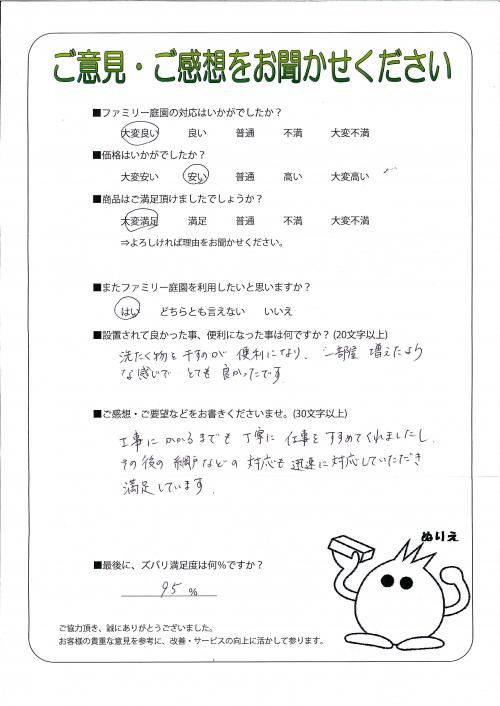 ご意見・ご感想をお聞かせください
■ファミリー庭園の対応はいかがでしたか？
大変良い 良い 普通 不満 大変不満
■価格はいかがでしたか？
大変安い 安い 普通 高い 大変高い
■商品はご満足頂けましたでしょうか？
大変満足 満足 普通 不満 大変不満
⇒よろしければ理由をお聞かせください。
■またファミリー庭園を利用したいと思いますか？
はい どちらとも言えない いいえ
■設置されて良かった事、便利になった事は何ですか？(20文字以上)
洗たく物を干すのが 便利になり、一部屋 増えたよう
な感じで とても 良かったです
■ご感想・ご要望などをお書きくださいませ。(30文字以上)
工事に かかるまでも 丁寧に 仕事を すすめてくれましたし
その後の 網戸などの 対応も 迅速に 対応していただき
満足しています.
ぬりえ
■最後に、ズバリ満足度は何%ですか？
95 %
ご協力頂き、誠にありがとうございました。
お客様の貴重な意見を参考に、改善・サービスの向上に活かして参ります。